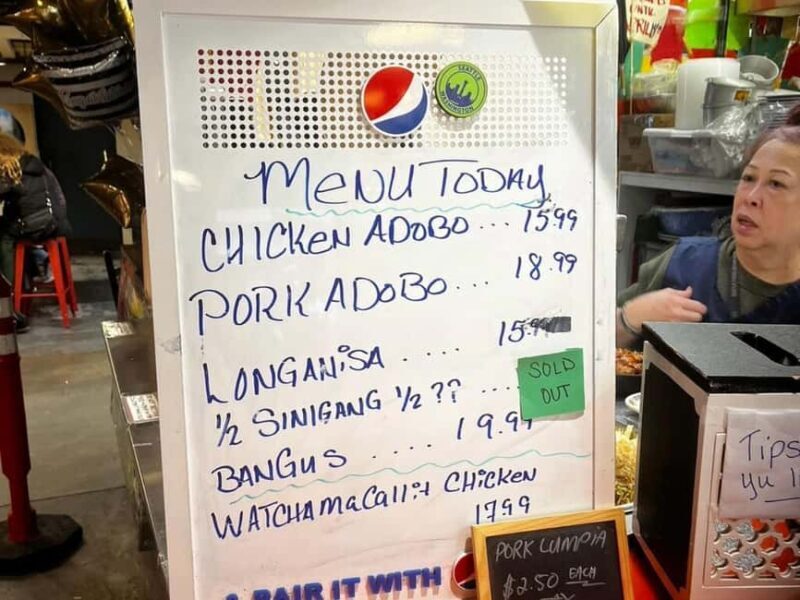 SEATTLE
WASHINGTON
MENU TODAY
CHICKEN ADOBO ... 15.99
PORK ADOBO ... 18.99
LONGANISA .... 15.9
1/2 SINIGANG 1/2 ?? ....
SOLD
OUT
BANGUS .... 19.99
WATCHAMACALLIT CHICKEN
1799
PAIR IT WITH
PORK LUMPIA
$2.50 EACH
Tips
yu